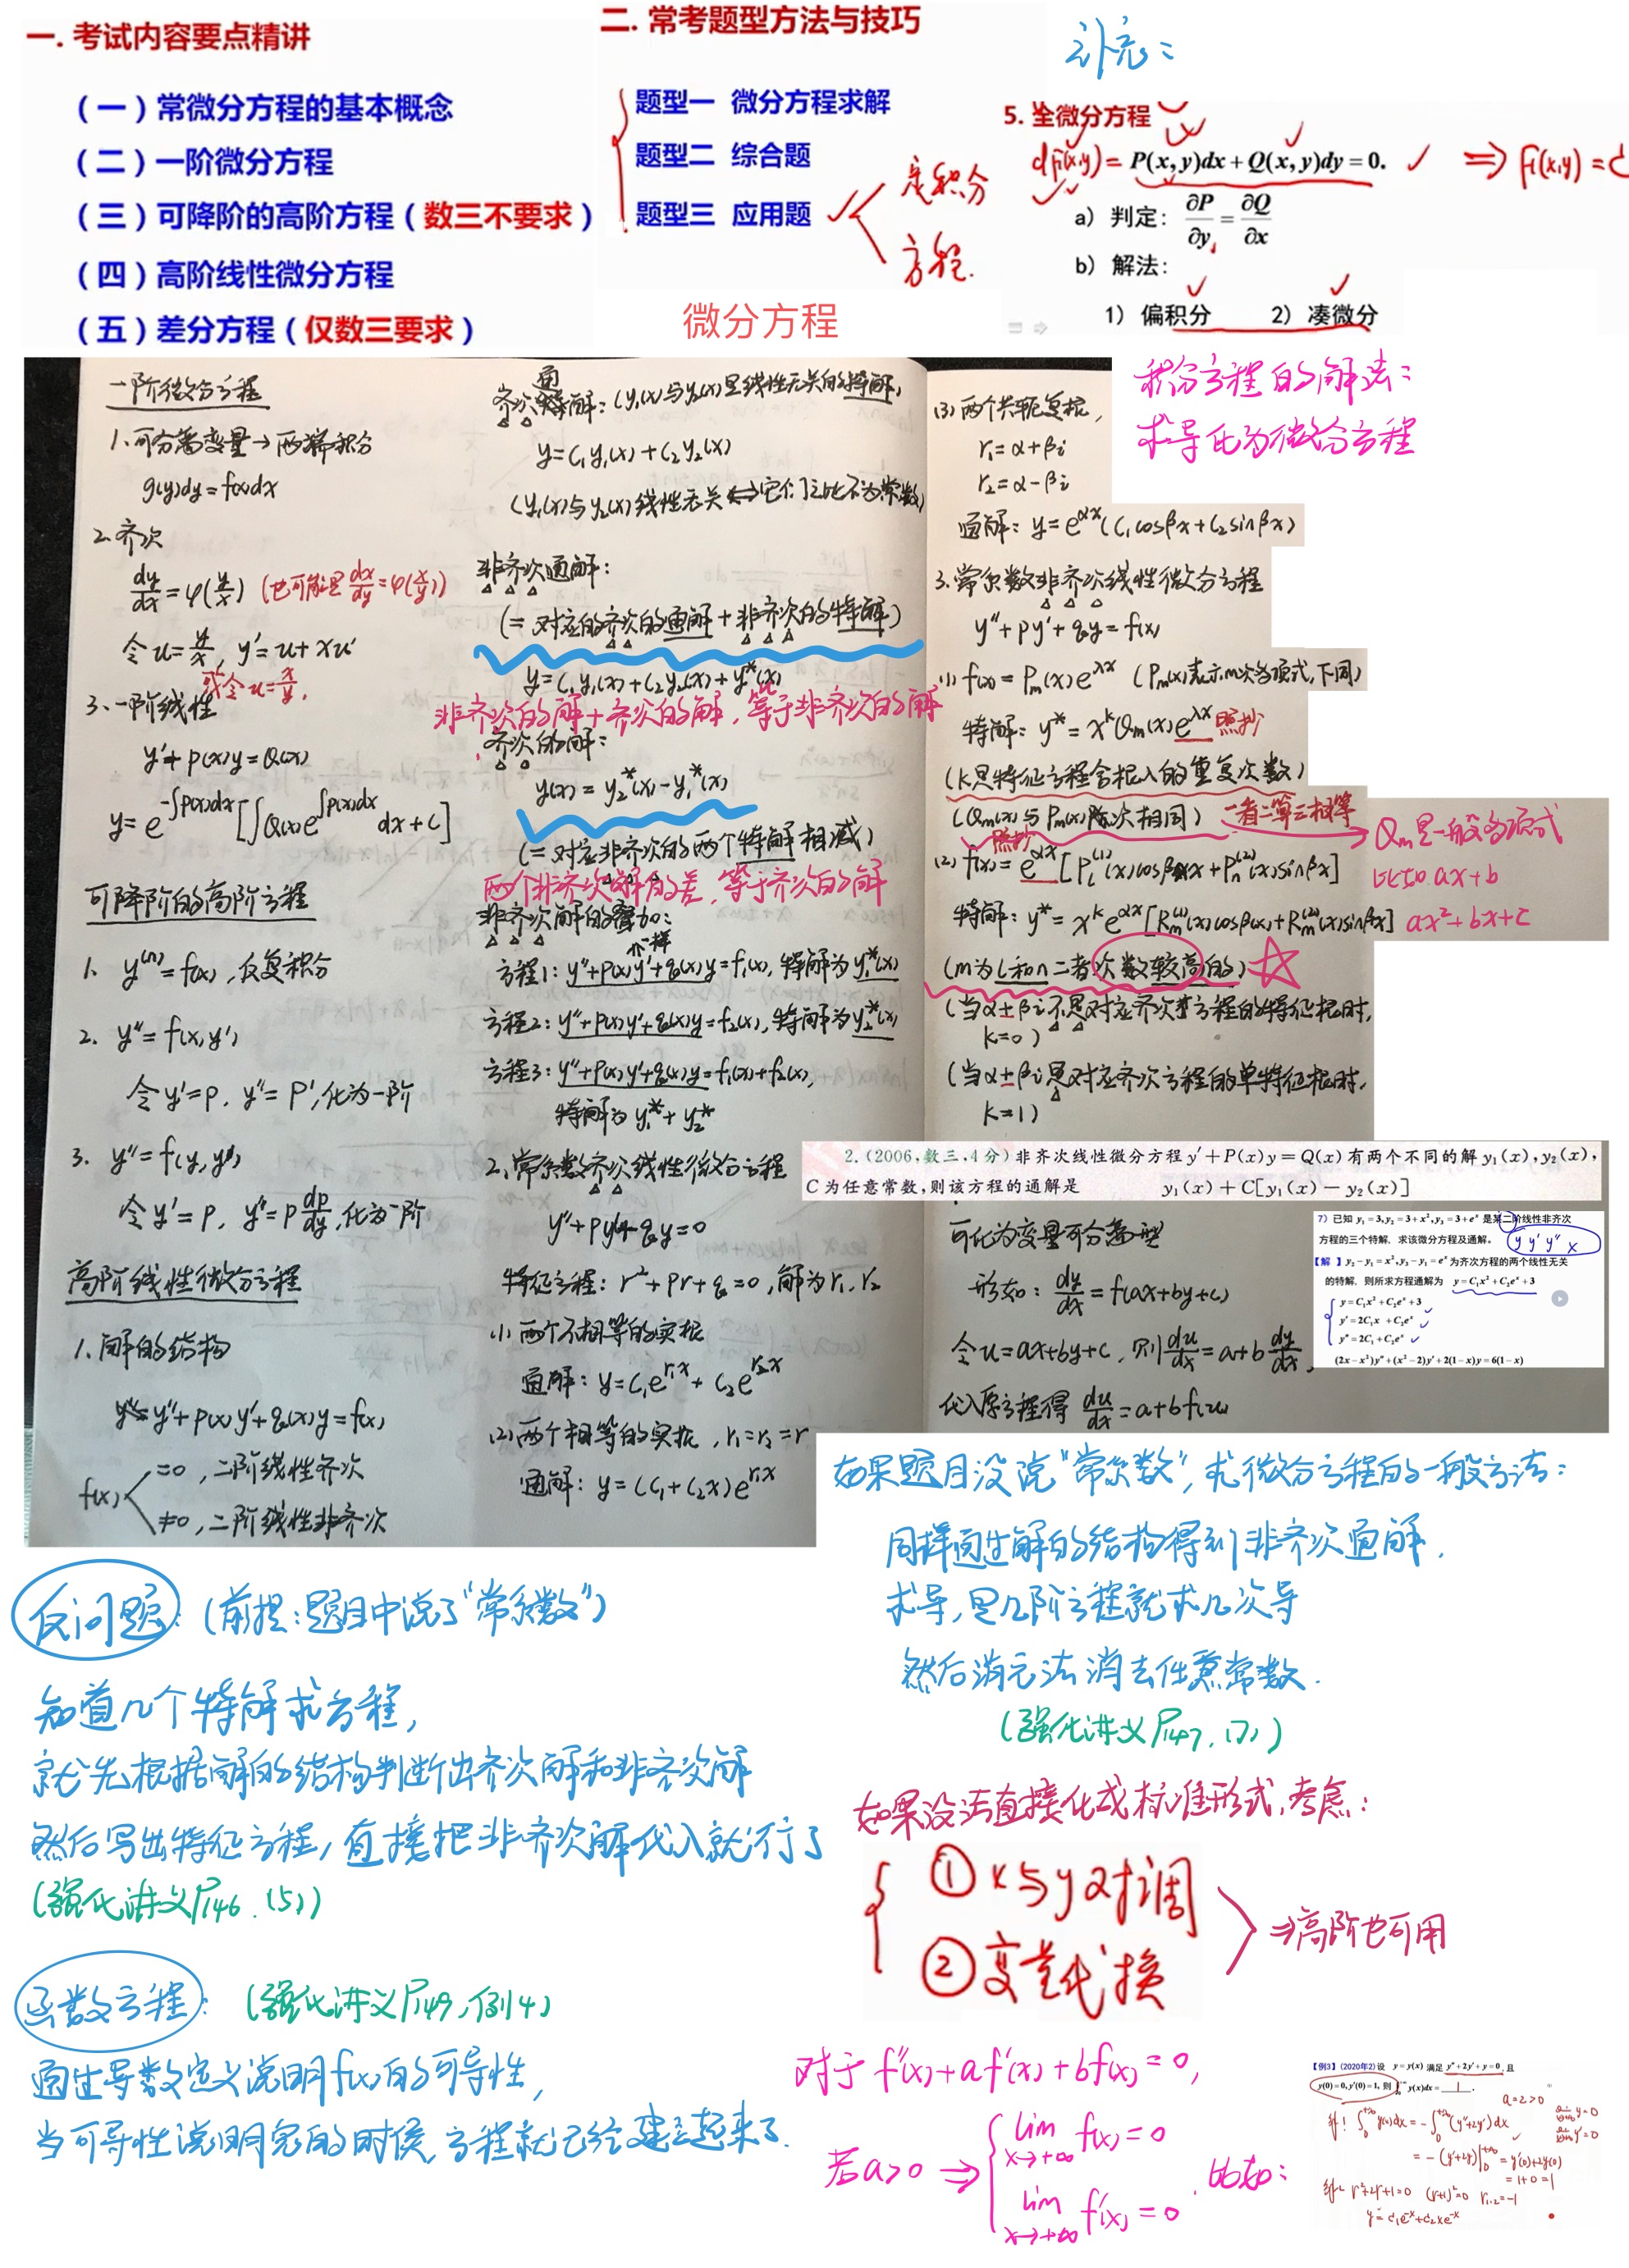 一. 考试内容要点精讲
（一）常微分方程的基本概念
（二）一阶微分方程
（三）可降阶的高阶方程（数三不要求）
（四）高阶线性微分方程
（五）差分方程（仅数三要求）
二. 常考题型方法与技巧
题型一 微分方程求解
题型二 综合题
题型三 应用题
定积分
方程.
微分方程
补充：
5. 全微分方程
dF(x,y) = P(x,y)dx+Q(x,y)dy=0. ⇒ F(x,y)=C
a) 判定: ∂P/∂y = ∂Q/∂x
b) 解法:
1) 偏积分 2) 凑微分
积分方程的解法：
求导化为微分方程
一阶微分方程
1.可分离变量→两端积分
g(y)dy=f(x)dx
2.齐次
dy/dx=φ(y/x) (也可能是dx/dy=φ(x/y))
令u=y/x, y'=u+xu'
或令u=x/y,
3、一阶线性
y'+p(x)y=Q(x)
y=e^{-∫p(x)dx}[∫Q(x)e^{∫p(x)dx}dx+C]
可降阶的高阶方程
1. y^(n)=f(x),反复积分
2. y''=f(x,y')
令y'=p, y''=p',化为一阶
3. y''=f(y,y')
令y'=p, y''=p dp/dy,化为一阶
高阶线性微分方程
1.解的结构
y''+p(x)y'+q(x)y=f(x)
f(x)
=0,二阶线性齐次
≠0,二阶线性非齐次
齐次通解：(y₁(x)与y₂(x)是线性无关的特解)
y=C₁y₁(x)+C₂y₂(x)
(y₁(x)与y₂(x)线性无关⟺它们之比不为常数)
非齐次通解：
(=对应的齐次的通解+非齐次的特解)
y=C₁y₁(x)+C₂y₂(x)+y*(x)
非齐次的解+齐次的解,等于非齐次的解
齐次的解：
y(x)=y₂*(x)-y₁*(x)
(=对应非齐次的两个特解相减)
两个非齐次解的差,等于齐次的解
非齐次解的叠加：
一样
方程1：y''+p(x)y'+q(x)y=f₁(x),特解为y₁*(x)
方程2：y''+p(x)y'+q(x)y=f₂(x),特解为y₂*(x)
方程3：y''+p(x)y'+q(x)y=f₁(x)+f₂(x),
特解为y₁*+y₂*
2.常系数齐次线性微分方程
y''+py'+qy=0
特征方程：r²+pr+q=0,解为r₁、r₂
(1)两个不相等的实根
通解：y=C₁e^{r₁x}+C₂e^{r₂x}
(2)两个相等的实根,r₁=r₂=r
通解：y=(C₁+C₂x)e^{r₁x}
(3)两个共轭复根,
r₁=α+βi
r₂=α-βi
通解：y=e^{αx}(C₁cosβx+C₂sinβx)
3.常系数非齐次线性微分方程
y''+py'+qy=f(x)
(1) f(x)=Pm(x)e^{λx} (Pm(x)表示m次多项式,下同)
特解：y*=x^k Qm(x)e^{λx} 照抄
(k是特征方程含根λ的重复次数)
(Qm(x)与Pm(x)次相同) 一看二算三相等
Qm是一般多项式
比如ax+b
ax²+bx+c
照抄
(2) f(x)=e^{αx}[P_l^(1)(x)cosβx+P_n^(2)(x)sinβx]
特解：y*=x^k e^{αx}[R_m^(1)(x)cosβx+R_m^(2)(x)sinβx]
(m为l和n二者次数较高的)
(当α±βi不是对应齐次方程的特征根时,
k=0)
(当α±βi是对应齐次方程的单特征根时,
k=1)
2.(2006,数三,4分)非齐次线性微分方程y'+P(x)y=Q(x)有两个不同的解y₁(x),y₂(x),
C为任意常数,则该方程的通解是 y₁(x)+C[y₁(x)-y₂(x)]
可化为变量可分离型
形如：dy/dx=f(ax+by+c)
令u=ax+by+c,则du/dx=a+b dy/dx,
代入原方程得du/dx=a+bf(u)
7) 已知 y₁=3,y₂=3+x²,y₃=3+eˣ 是某二阶线性非齐次
方程的三个特解, 求该微分方程及通解.
y y' y'' x
【解】y₂-y₁=x²,y₃-y₁=eˣ 为齐次方程的两个线性无关
的特解, 则所求方程通解为 y=C₁x²+C₂eˣ+3
y=C₁x²+C₂eˣ+3
y'=2C₁x+C₂eˣ
y''=2C₁+C₂eˣ
(2x-x²)y''+(x²-2)y'+2(1-x)y=6(1-x)
如果题目没说“常系数”,求微分方程的一般方法：
同样通过解的结构得到非齐次通解.
求导,是几阶方程就求几次导
然后消元法消去任意常数.
(强化讲义P147,(7))
反问题：(前提:题目中说了“常系数”)
知道几个特解求方程,
就先根据解的结构判断出齐次解和非齐次解
然后写出特征方程,直接把非齐次解代入就行了
(强化讲义P146.(5))
如果没法直接化成标准形式,考虑：
①x与y对调
②变量代换
⇒高阶也可用
函数方程：(强化讲义P149,例4)
通过导数定义说明f(x)的可导性,
当可导性说明完的时候,方程就已经建立起来了.
对于f''(x)+af'(x)+bf(x)=0,
若a>0 ⇒
lim x→+∞ f(x)=0
lim x→+∞ f'(x)=0
比如：
【例3】(2020年2)设 y=y(x) 满足 y''+2y'+y=0, 且
y(0)=0,y'(0)=1, 则 ∫₀^{+∞}y(x)dx=1.
a=2>0
解1 ∫₀^{+∞}y(x)dx=-∫₀^{+∞}(y''+2y')dx
=-(y'+2y)|₀^{+∞}=y'(0)+2y(0)
=1+0=1
解2 r²+2r+1=0 (r+1)²=0 r₁,₂=-1
y=C₁e^{-x}+C₂xe^{-x}